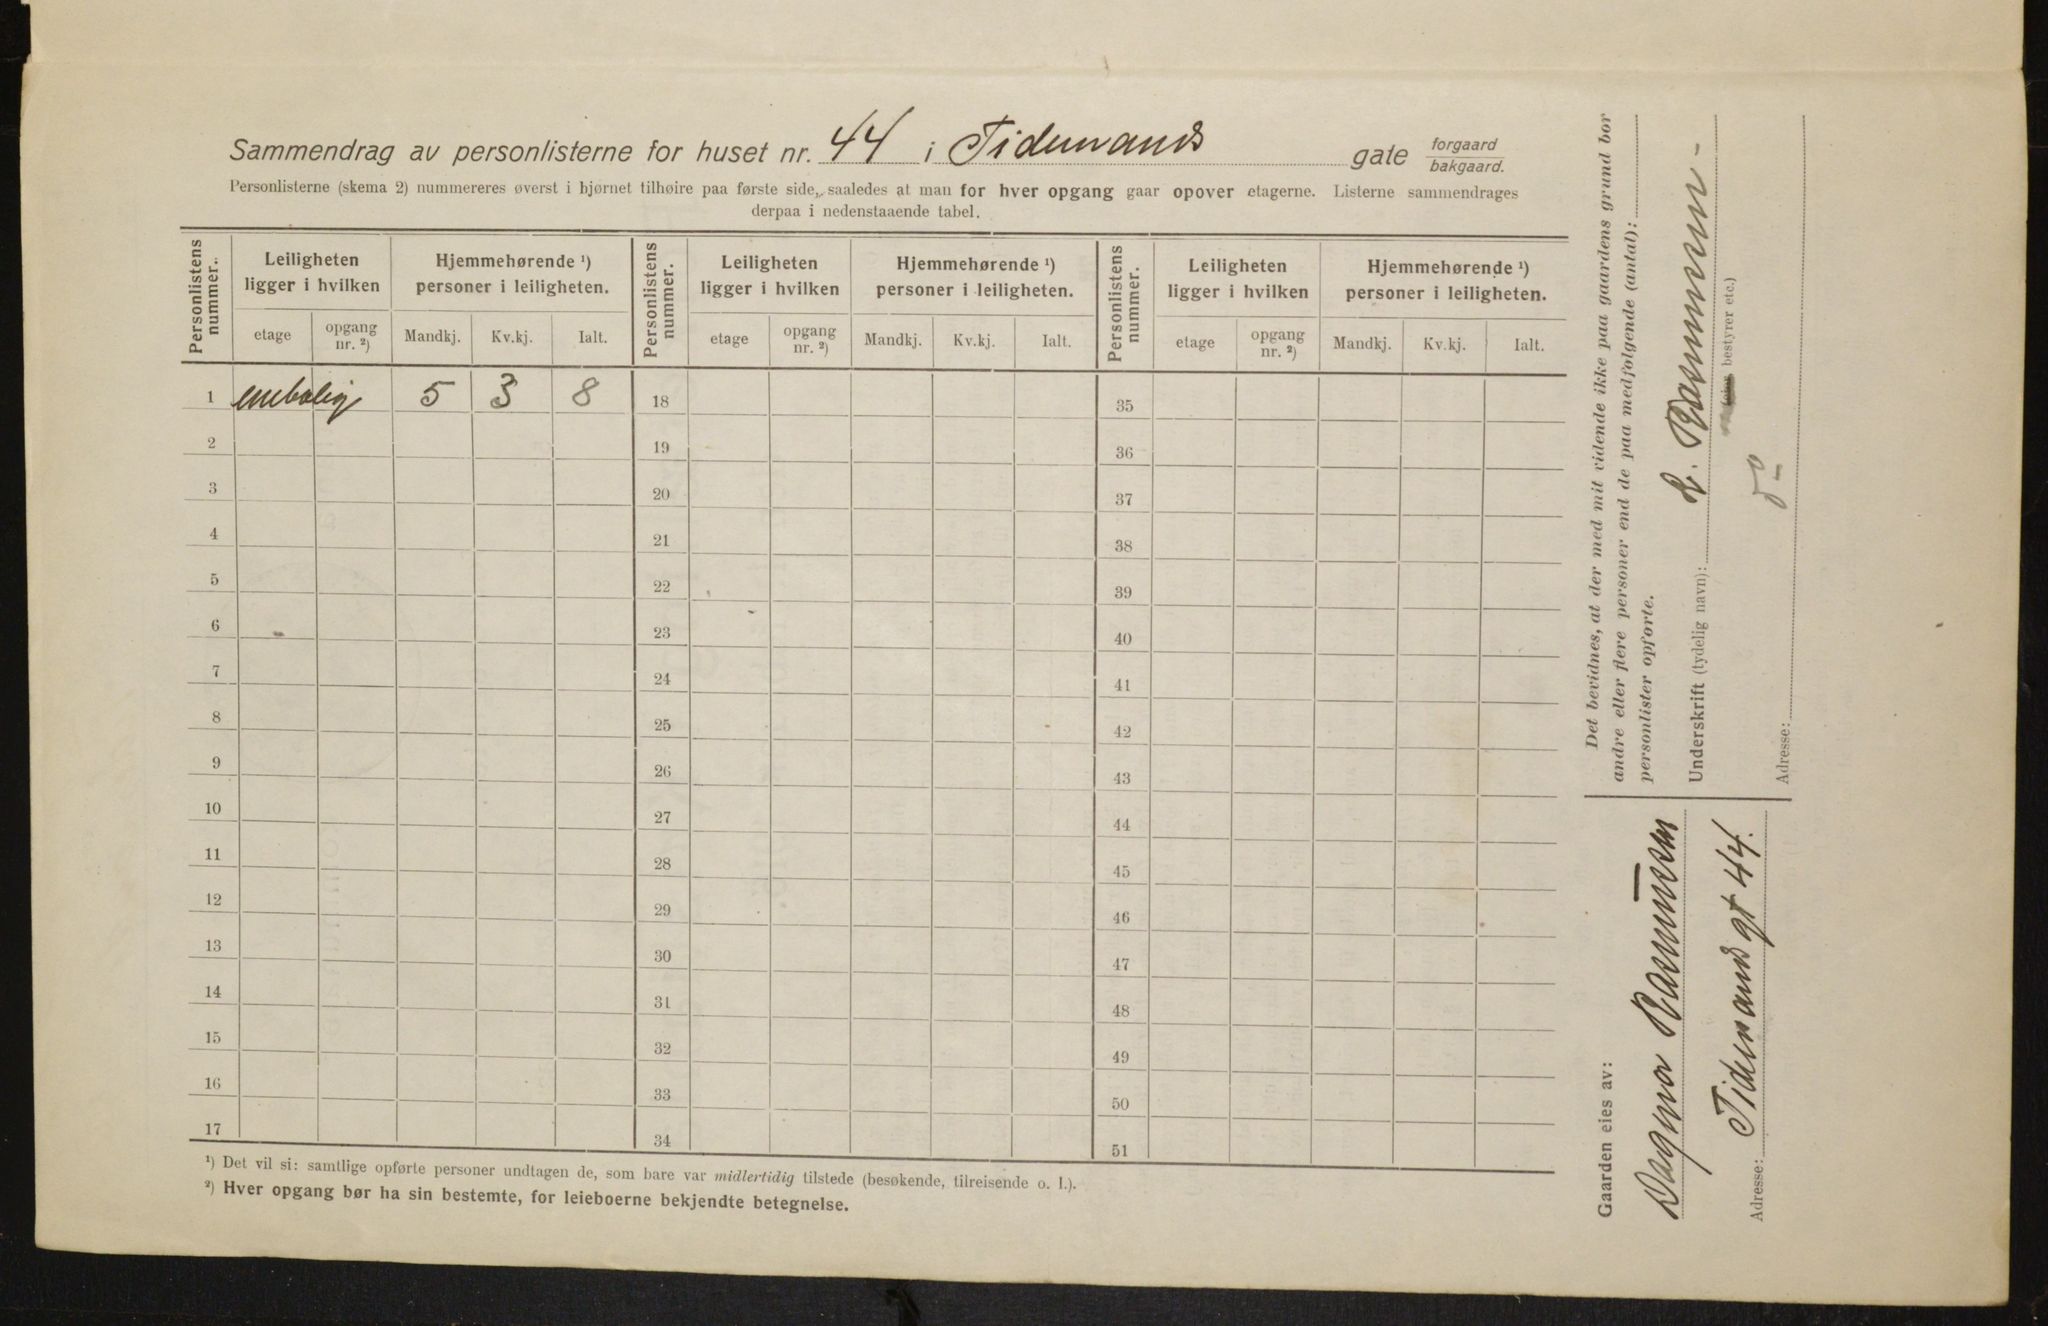 Sammendrag av personlisterne for huset nr. 44 i Tidemands gate forgaard bakgaard.
Personlisterne (skema 2) nummereres øverst i hjørnet tilhøire paa første side, saaledes at man for hver opgang gaar opover etagerne. Listerne sammendrages
derpaa i nedenstaaende tabel.
Personlistens nummer. Leiligheten ligger i hvilken Hjemmehørende ¹) personer i leiligheten. Personlistens nummer. Leiligheten ligger i hvilken Hjemmehørende ¹) personer i leiligheten. Personlistens nummer. Leiligheten ligger i hvilken Hjemmehørende ¹) personer i leiligheten.
etage opgang nr. ²) Mandkj. Kv.kj. Ialt. etage opgang nr. ²) Mandkj. Kv.kj. Ialt. etage opgang nr. ²) Mandkj. Kv.kj. Ialt.
1 enebolig 5 3 8 18 35
2 19 36
3 20 37
4 21 38
5 22 39
6 23 40
7 24 41
8 25 42
9 26 43
10 27 44
11 28 45
12 29 46
13 30 47
14 31 48
15 32 49
16 33 50
17 34 51
¹) Det vil si: samtlige opførte personer undtagen de, som bare var midlertidig tilstede (besøkende, tilreisende o. l.).
²) Hver opgang bør ha sin bestemte, for leieboerne bekjendte betegnelse.
Gaarden eies av:
Dagna Rasmussen
Adresse: Tidemands gt 44.
Det bevidnes, at der med mit vidende ikke paa gaardens grund bor
andre eller flere personer end de paa medfolgende (antal):
personlister opførte.
Underskrift (tydelig navn): Rasmussen
bestyrer etc.)
Adresse: do